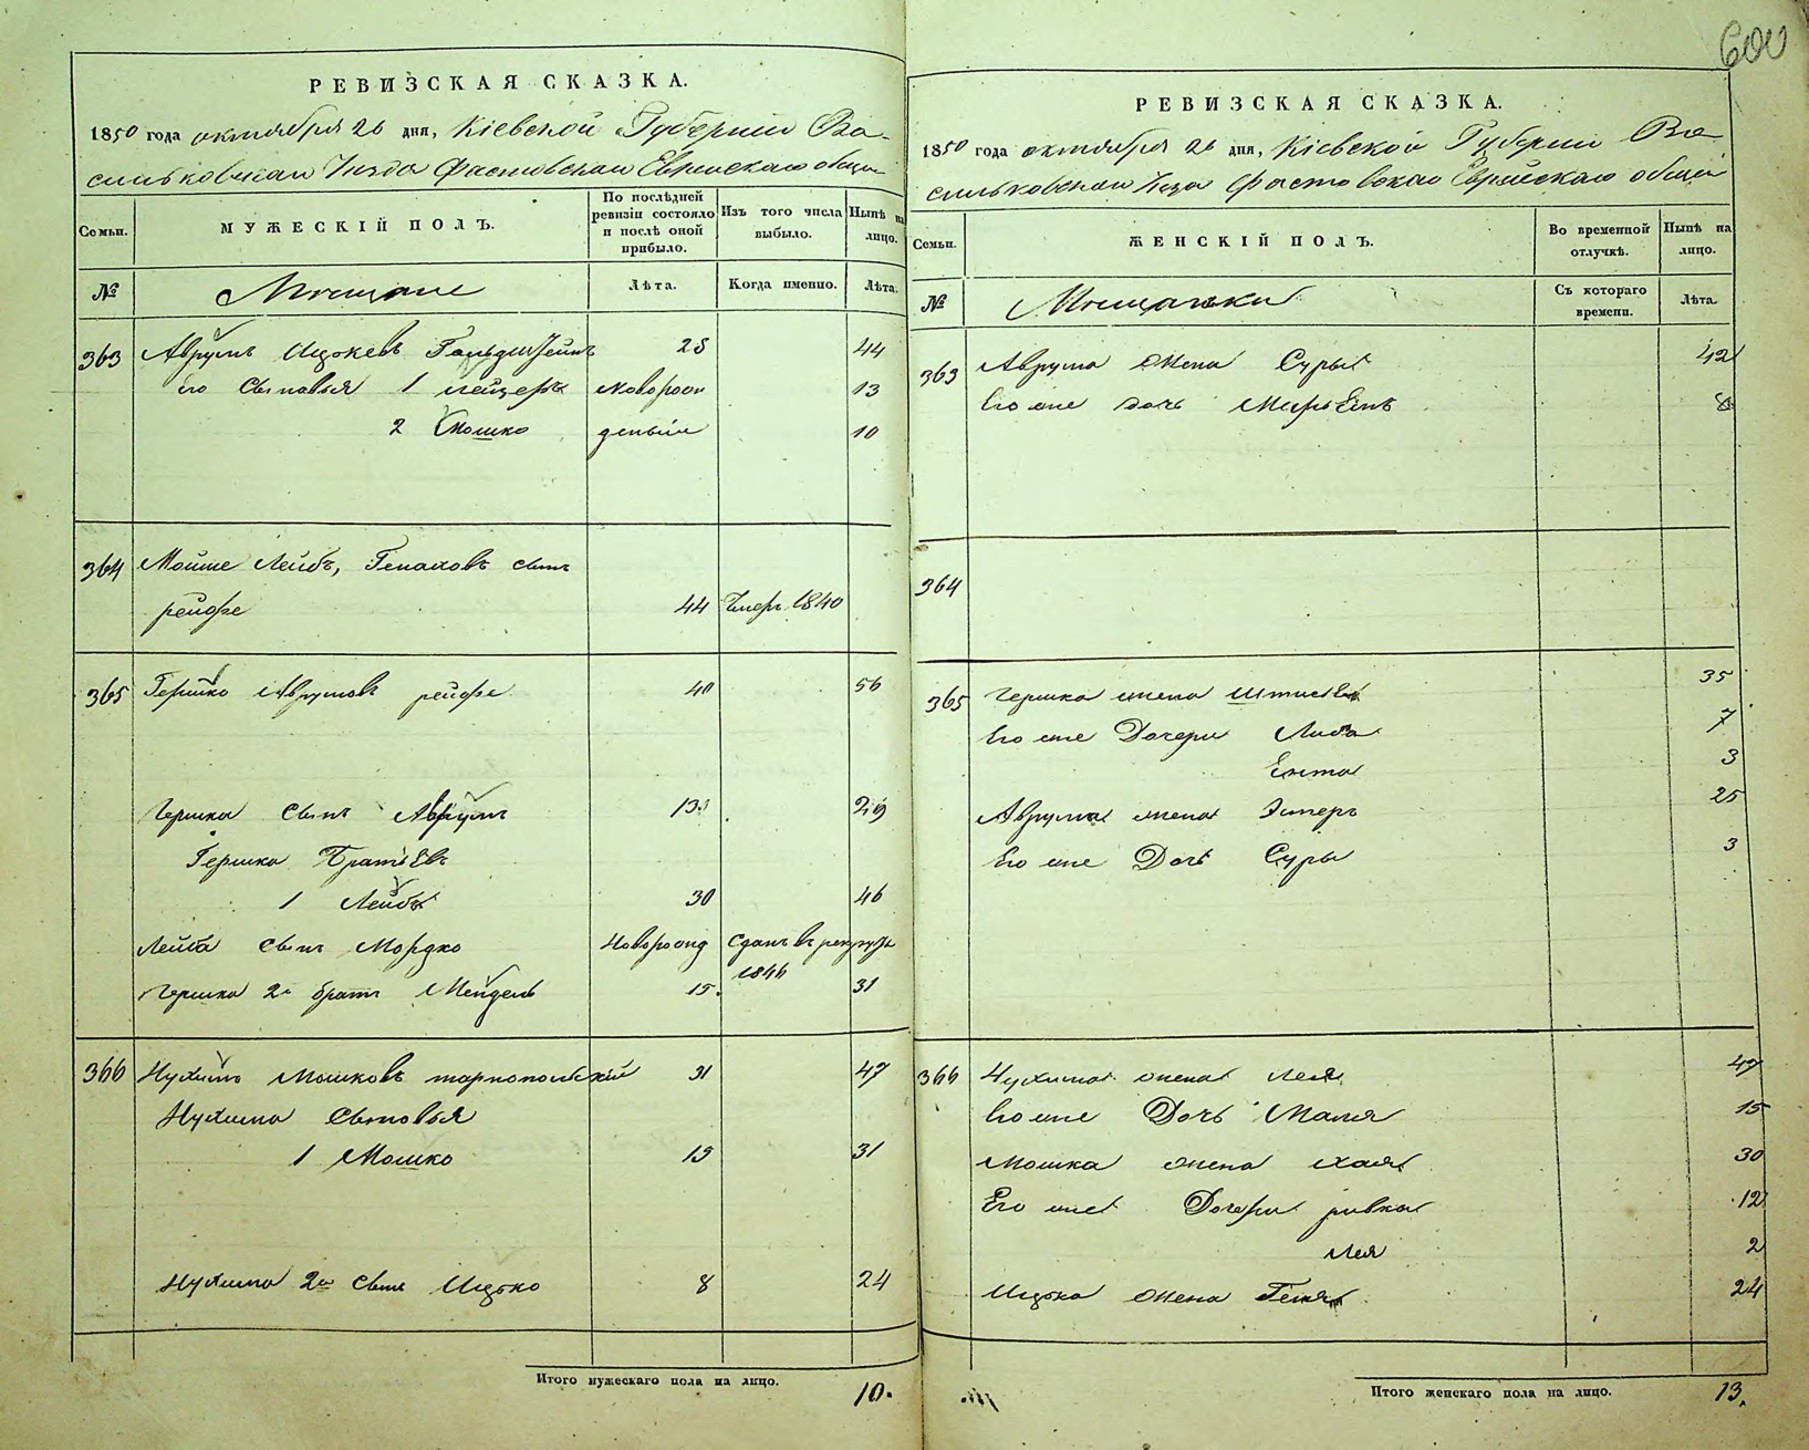 600
РЕВИЗСКАЯ СКАЗКА.
1850 года октября 26 дня, Кіевской Губерніи Ва-
сильковскаго Уезда Фастовскаго Еврейскаго общес
Семьи. МУЖЕСКІЙ ПОЛЪ. По послѣдней ревизіи состояло и послѣ оной прибыло. Изъ того числа выбыло. Нынѣ на лицо.
№ Мещане Лѣта. Когда именно. Лѣта.
363 Аврумъ Ицковъ Гольдштейнъ 28 44
его Сыновья 1 Лейзеръ новорож 13
2 Мошко денные 10
364 Мойше Лейбъ, Генаховъ сынъ
рейфе 44 Умеръ 1840
365 Гершко Аврумовъ рейфе 40 56
Гершка Сынъ Аврумъ 13 29
Гершка Братьевъ
1 Лейба 30 46
Лейба сынъ Мордко Новорожд Сданъ в рекруты
1846
Гершка 2й братъ Мендель 15. 31
366 Нухимъ Мошковъ тарнопольскій 31 47
Нухима Сыновья
1 Мошко 15 31
Нухима 2й Сынъ Ицько 8 24
Итого мужескаго пола на лицо. 10.
РЕВИЗСКАЯ СКАЗКА.
1850 года октября 26 дня, Кіевской Губерніи Ва
сильковскаго Уезда Фастовскаго Еврейскаго общес
Семьи. ЖЕНСКІЙ ПОЛЪ. Во временной отлучкѣ. Нынѣ на лицо.
№ Мещанки Съ котораго времени. Лѣта.
363 Аврума жена Суры 42
Его же дочь Марьемъ 8
364
365 Гершка жена 35
Его же Дочери Либа 7
Ента 3
Аврума жена Эстеръ 25
Его же Дочь Суры 3
366 Нухима жена Лея 47
Его же Дочь Маля 15
Мошка жена Хая 30
Его же Дочери ривка 12
Лея 2
Ицька жена Геня 24
Итого женскаго пола на лицо. 13.